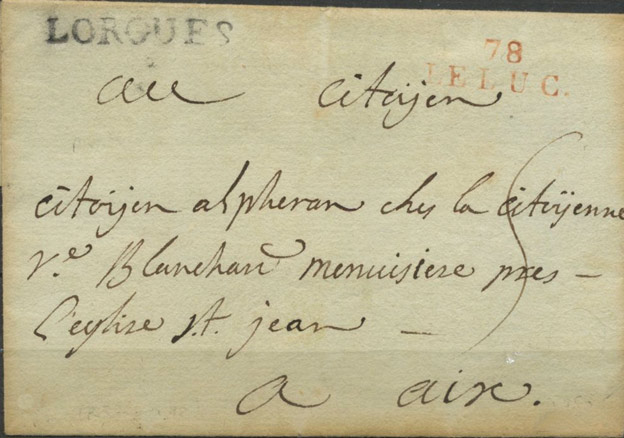 LORGUES
78
LELUC.
au citoijen
citoijen alpheran ches la citoÿenne
v.e Blanchard menuisiere pres —
l'eglise st. jean —
a aix.